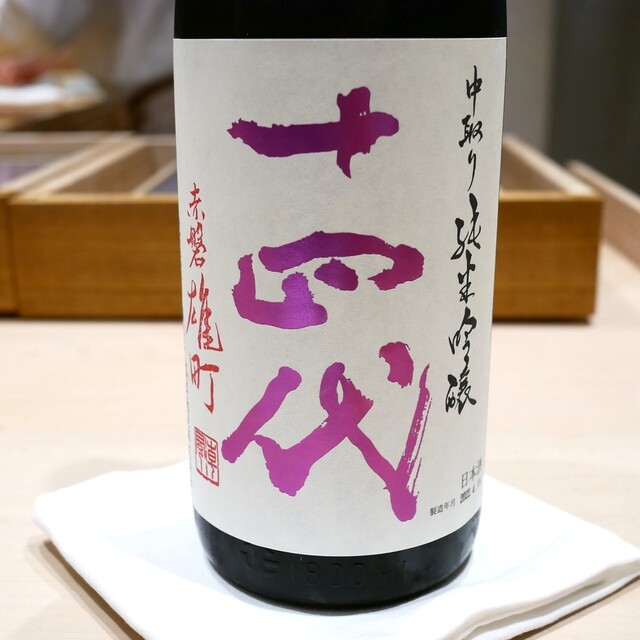 中取り純米吟醸
十四代
赤磐雄町
日本酒
製造年月 2022.
1800ml